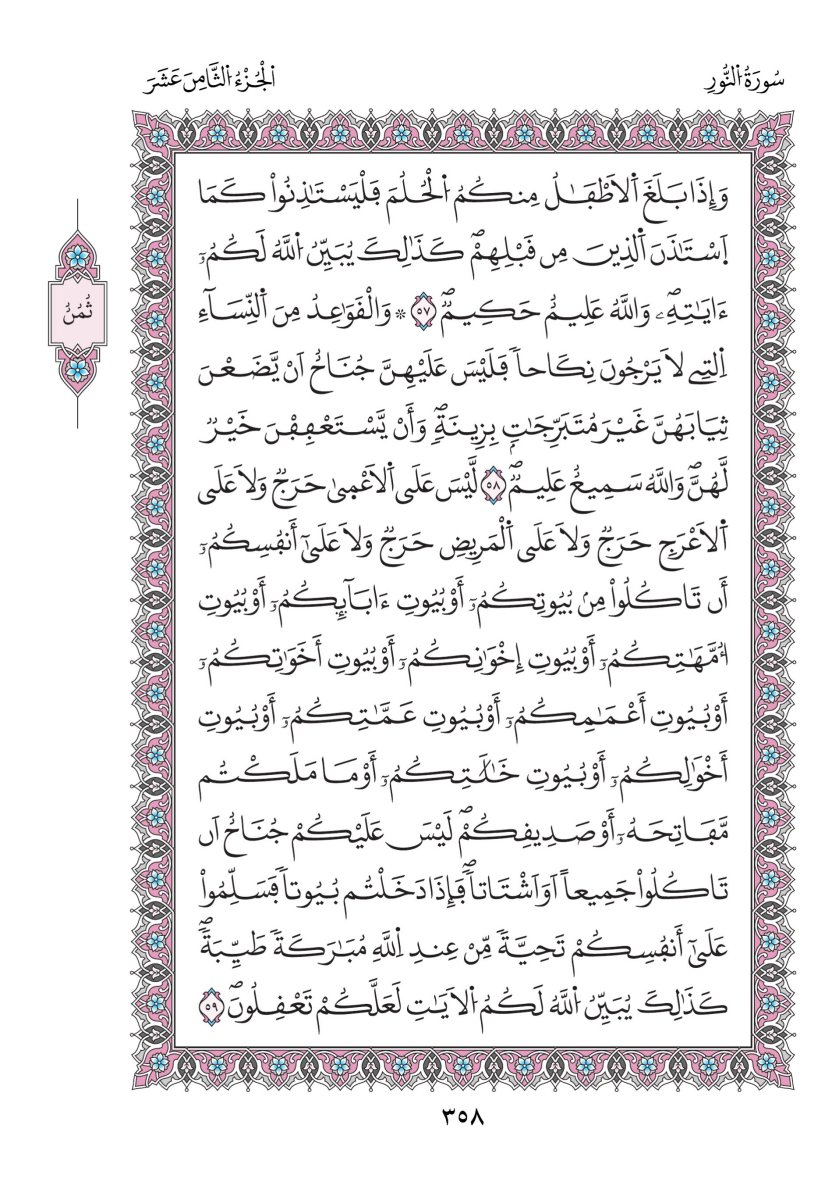 سُورَةُ النُّورِ
الْجُزْءُ الثَّامِنَ عَشَرَ
وَإِذَا بَلَغَ اَلَاطْفَٰلُ مِنكُمُ الْحُلُمَ فَلْيَسْتَٰذِنُواْ كَمَا
اَسْتَٰذَنَ اَلذِينَ مِن قَبْلِهِمْۖ كَذَٰلِكَ يُبَيِّنُ اللَّهُ لَكُمُۥٓ
ءَايَٰتِهِۦۖ وَاللَّهُ عَلِيمٌ حَكِيمٌۖ ٥٧ * وَالْقَوَٰعِدُ مِنَ اَلنِّسَآءِ
اِلتِے لَا يَرْجُونَ نِكَاحاٗ فَلَيْسَ عَلَيْهِنَّ جُنَاحٌ اَنْ يَّضَعْنَ
ثِيَابَهُنَّ غَيْرَ مُتَبَرِّجَٰتِۢ بِزِينَةٖۖ وَأَنْ يَّسْتَعْفِفْنَ خَيْرٞ
لَّهُنَّۖ وَاللَّهُ سَمِيعٌ عَلِيمٞۖ ٥٨ لَّيْسَ عَلَى اَلَاعْمِىٰ حَرَجٞ وَلَا عَلَى
اَلَاعْرَجِ حَرَجٞ وَلَا عَلَى اَلْمَرِيضِ حَرَجٞ وَلَا عَلَىٰٓ أَنفُسِكُمُۥٓ
أَن تَاكُلُواْ مِنۢ بُيُوتِكُمُۥٓ أَوْ بُيُوتِ ءَابَآئِكُمُۥٓ أَوْ بُيُوتِ
أُمَّهَٰتِكُمُۥٓ أَوْ بُيُوتِ إِخْوَٰنِكُمُۥٓ أَوْ بُيُوتِ أَخَوَٰتِكُمُۥٓ
أَوْ بُيُوتِ أَعْمَٰمِكُمُۥٓ أَوْ بُيُوتِ عَمَّٰتِكُمُۥٓ أَوْ بُيُوتِ
أَخْوَٰلِكُمُۥٓ أَوْ بُيُوتِ خَٰلَٰتِكُمُۥٓ أَوْ مَا مَلَكْتُم
مَّفَاتِحَهُۥٓ أَوْ صَدِيقِكُمْۖ لَيْسَ عَلَيْكُمْ جُنَاحٌ اَن
تَاكُلُواْ جَمِيعاً اَوَ اَشْتَاتاٗۖ فَإِذَا دَخَلْتُم بُيُوتاٗ فَسَلِّمُواْ
عَلَىٰٓ أَنفُسِكُمْ تَحِيَّةٗ مِّنْ عِندِ اِللَّهِ مُبَٰرَكَةٗ طَيِّبَةٗۖ
كَذَٰلِكَ يُبَيِّنُ اللَّهُ لَكُمُ اُلَايَٰتِ لَعَلَّكُمْ تَعْقِلُونَۖ ٥٩
ثُمُنُ
٣٥٨